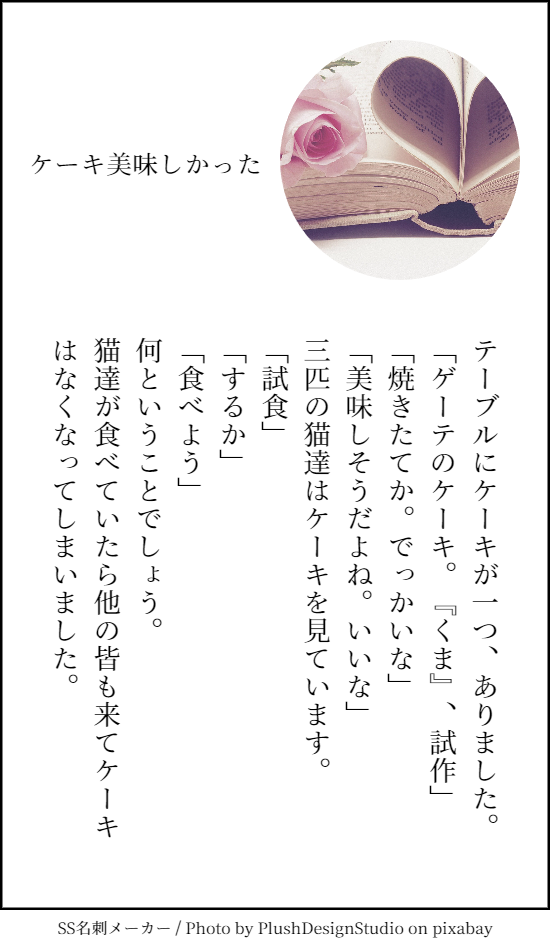 ケーキ美味しかった
テーブルにケーキが一つ、ありました。
「ゲーテのケーキ。『くま』、試作」
「焼きたてか。でっかいな」
「美味しそうだよね。いいな」
三匹の猫達はケーキを見ています。
「試食」
「するか」
「食べよう」
何ということでしょう。
猫達が食べていたら他の皆も来てケーキ
はなくなってしまいました。
SS名刺メーカー / Photo by PlushDesignStudio on pixabay